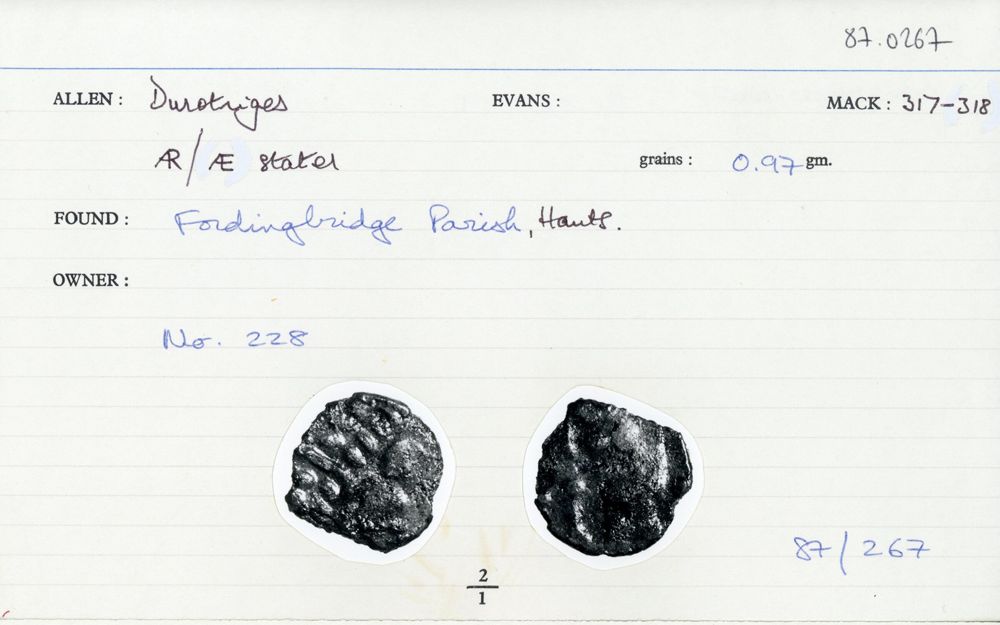 87.0267
ALLEN : Durotriges EVANS : MACK : 317-318
ÆR/Æ stater grains : 0.97 gm.
FOUND : Fordingbridge Parish, Hants.
OWNER :
No. 228
87/267
2
1